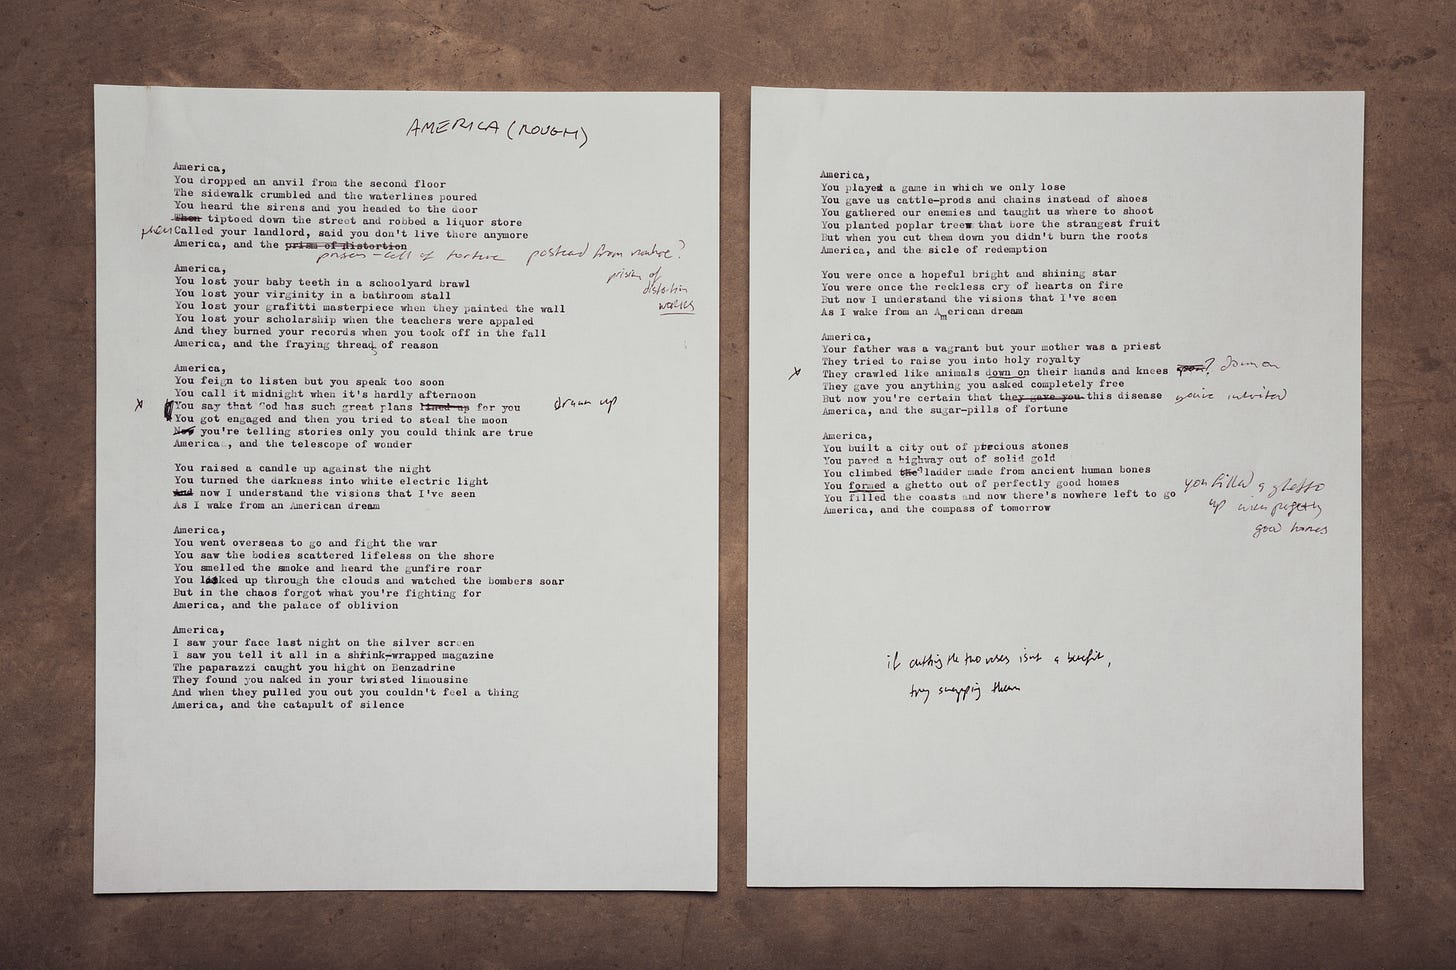 AMERICA (ROUGH)
America,
You dropped an anvil from the second floor
The sidewalk crumbled and the waterlines poured
You heard the sirens and you headed to the door
Then tiptoed down the street and robbed a liquor store
then Called your landlord, said you don't live there anymore
America, and the prism of distortion
prison-cell of torture postcard from nowhere?
prism of
distortion
works
America,
You lost your baby teeth in a schoolyard brawl
You lost your virginity in a bathroom stall
You lost your grafitti masterpiece when they painted the wall
You lost your scholarship when the teachers were appaled
And they burned your records when you took off in the fall
America, and the fraying thread of reason
America,
You feign to listen but you speak too soon
You call it midnight when it's hardly afternoon
x You say that God has such great plans lined up for you drawn up
You got engaged and then you tried to steal the moon
Now you're telling stories only you could think are true
America , and the telescope of wonder
You raised a candle up against the night
You turned the darkness into white electric light
And now I understand the visions that I've seen
As I wake from an American dream
America,
You went overseas to go and fight the war
You saw the bodies scattered lifeless on the shore
You smelled the smoke and heard the gunfire roar
You looked up through the clouds and watched the bombers soar
But in the chaos forgot what you're fighting for
America, and the palace of oblivion
America,
I saw your face last night on the silver screen
I saw you tell it all in a shrink-wrapped magazine
The paparazzi caught you hight on Benzadrine
They found you naked in your twisted limousine
And when they pulled you out you couldn't feel a thing
America, and the catapult of silence
America,
You played a game in which we only lose
You gave us cattle-prods and chains instead of shoes
You gathered our enemies and taught us where to shoot
You planted poplar trees that bore the strangest fruit
But when you cut them down you didn't burn the roots
America, and the sicle of redemption
You were once a hopeful bright and shining star
You were once the reckless cry of hearts on fire
But now I understand the visions that I've seen
As I wake from an American dream
America,
Your father was a vagrant but your mother was a priest
They tried to raise you into holy royalty
x They crawled like animals down on their hands and knees upon? down on
They gave you anything you asked completely free
But now you're certain that they gave you this disease you've inherited
America, and the sugar-pills of fortune
America,
You built a city out of precious stones
You paved a highway out of solid gold
You climbed the ladder made from ancient human bones
You formed a ghetto out of perfectly good homes
You filled the coasts and now there's nowhere left to go you filled a ghetto
America, and the compass of tomorrow
up with perfectly
good homes
if cutting the two verses isn't a benefit,
try swapping them